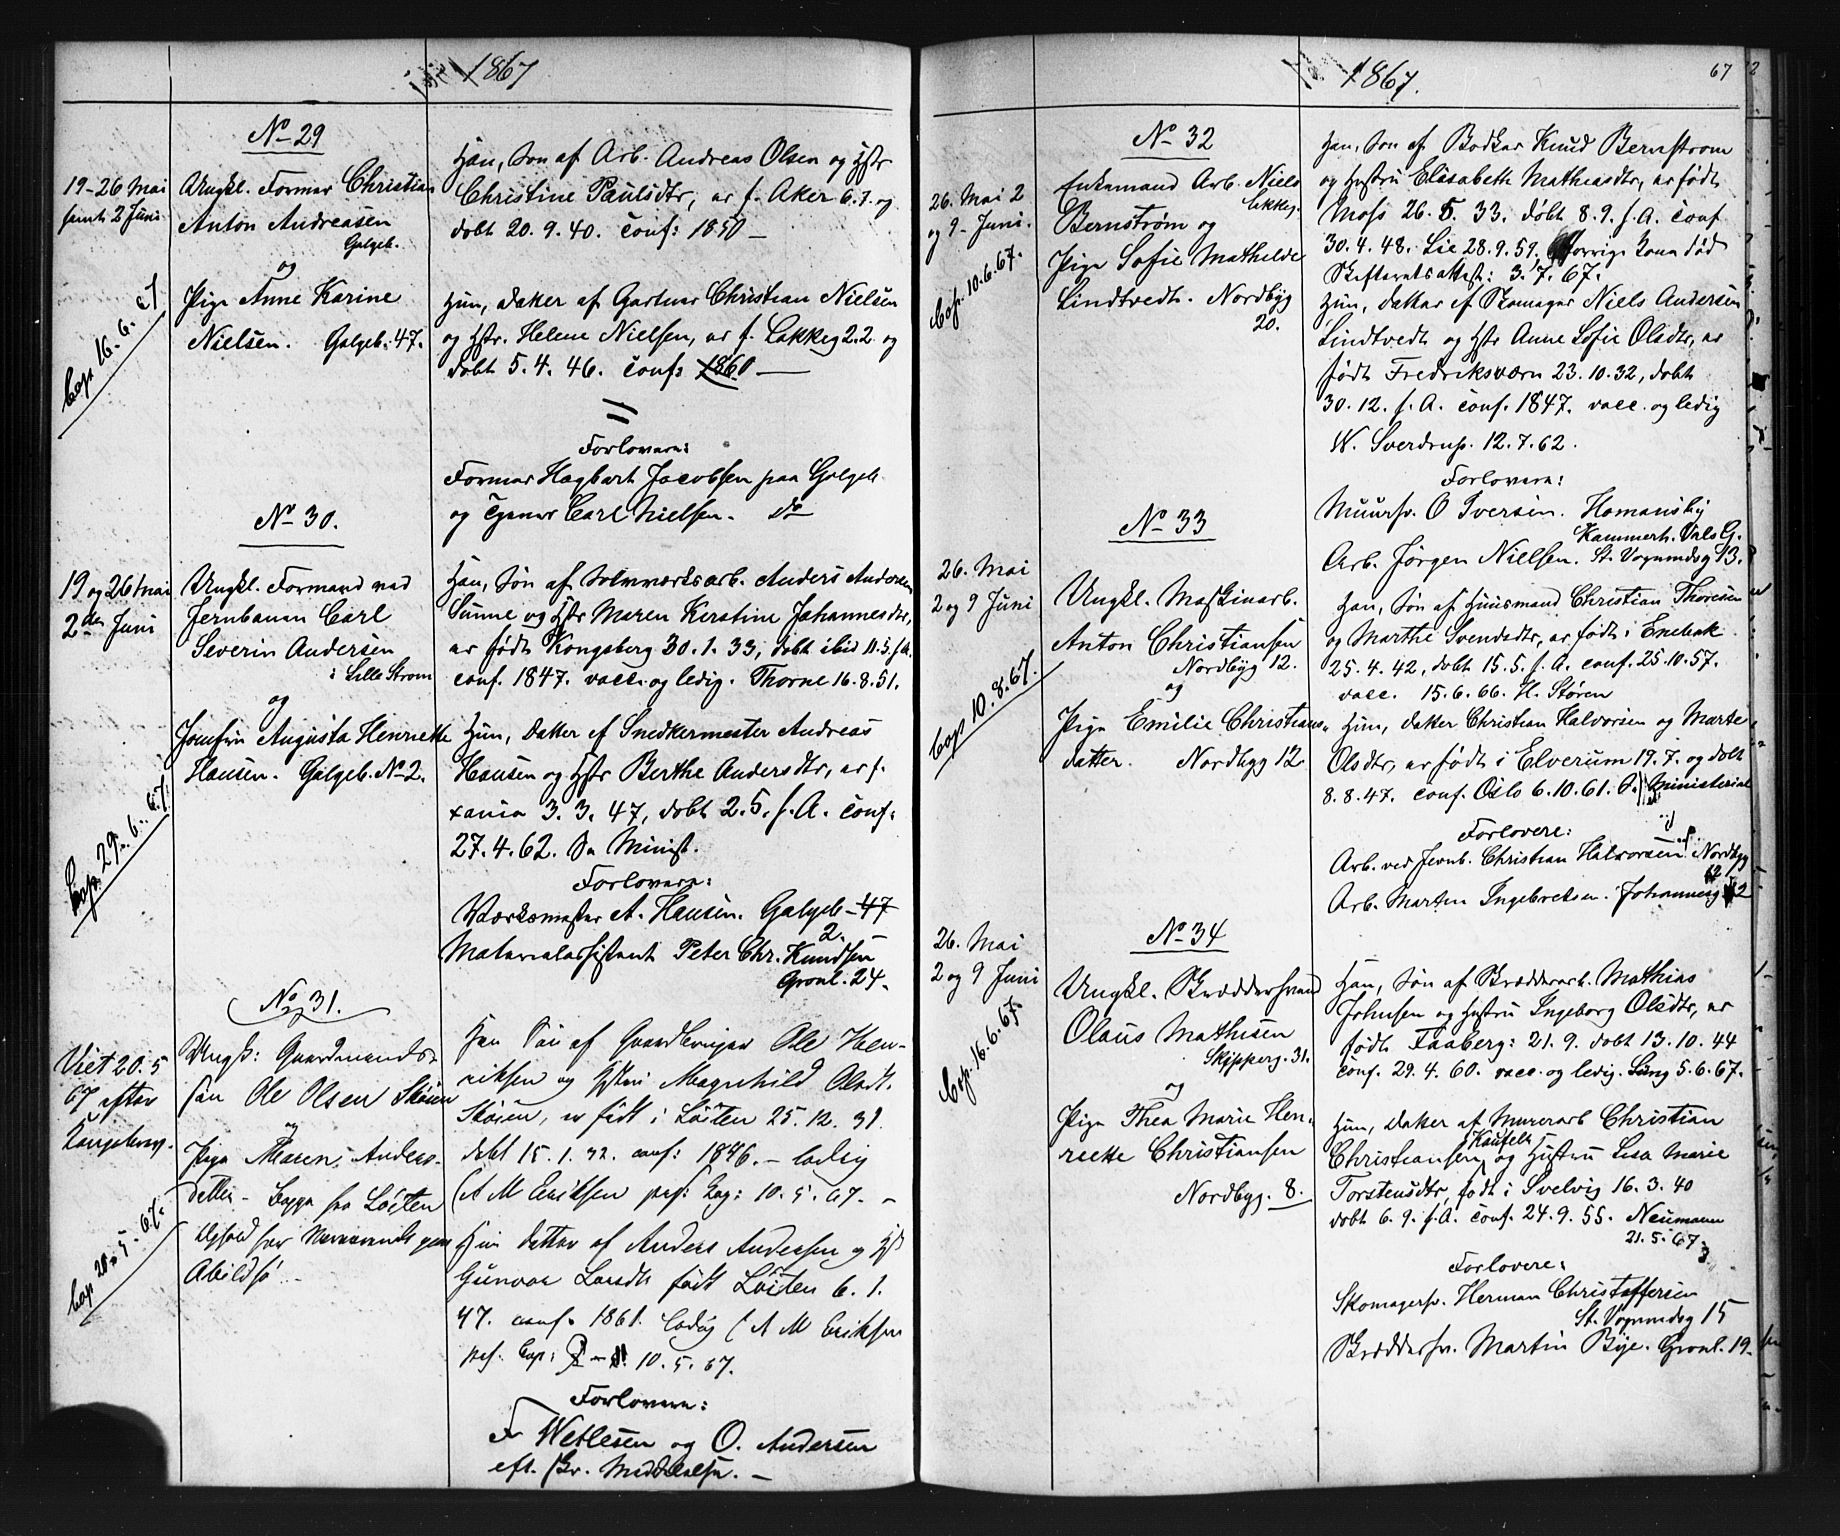 1867
No 29
19-26 Mai
samt 2 Juni.
Ungkl. Former Christian
Anton Andreasen
Galgeb.
og
Pige Anne Karine
Nielsen. Galgeb. 47.
Cop. 16.6.67
Han, Søn af Arb. Andreas Olsen og Hstr
Christine Paulsdtr, er f. Aker 6.7. og
døbt 20.9.40. Conf: 1850 —
Hun, Datter af Gartner Christian Nielsen
og Hstr. Helene Nielsen, er f. Lakkeg 2.2 og
døbt 5.4.46. Conf: 1860 —
Forlovere:
Former Hagbart Jacobsen paa Galgeb.
og Carl Nielsen. do
No 30.
19 og 26 Mai
2den Juni
Ungkl. Formand ved
Jernbanen Carl
Severin Andersen
i Lille Strøm
og
Jomfru Augusta Henriette
Hansen. Galgeb. No 2.
Cop. 29.6.67.
Han, Søn af Sølvværksarb. Anders Andersen
Sunne og Hstr Maren Kirstine Johannesdtr,
er født Kongsberg 30.1.33, døbt ibid 11.3. s.A.
conf. 1847. vacc. og ledig. Thorne 16.8.51.
Hun, Datter af Snedkermester Andreas
Hansen og Hstr Berthe Andersdtr, er f.
xania 3.3.47, døbt 2.5. s.A. Conf.
27.4.62. Da Minist.
Forlovere:
Værksmester A. Hansen. Galgeb. 47
2.
Materialassistent Peter Chr. Knudsen
Grønl. 24.
No 31.
Viet 20.5
67 efter
Kongebrev.
Ungk: Gaardmands-
søn Ole Olsen Skøien
og
Pige Maren Anders-
datter — Begge fra Løiten
Ophold for nærværende paa
Abildsø —
Cop. 20.5.67.
Han Søn af Gaardbruger Ole Hen-
riksen og Hstru Magnhild Olsdt.
Skøien, er født i Løiten 25.12.31.
døbt 15.1.32. conf: 1846. — ledig
(A M Eriksen pers: Cap: 10.5.67. —
Hun Datter af Anders Andersen og Hst
Gunvor Larsdt født Løiten 6.1.
47. conf. 1861. ledig (A M Eriksen
pers. Cap: 10.5.67.
Forlovere:
F Wetlesen og O. Andersen
eft. Skr. Meddelelse. —
1867.
67
No 32
26. Mai 2
og 9 Juni.
Cop. 10.6.67.
Enkemand Arb. Niels
Lakkeg.
Bernstrøm og
Pige Sofie Mathilde
Lindtvedt. Nordbyg
20.
Han, Søn af Bødker Knud Bernstrøm
og Hustru Elisabeth Mathiasdtr, er født
Moss 26.5.33. døbt 8.9. s.A. Conf
30.4.48. Lie 28.9.59. Forrige Kone død
Skifteretsattest: 3.7.67.
Hun, Datter af Skomager Niels Andersen
Lindtvedt og Hstr Anne Sofie Olsdtr, er
født Fredriksværn 23.10.32, døbt
30.12. s.A. conf. 1847. vacc. og ledig
W. Sverdrup. 12.7.62.
Forlovere:
Muursv. O Iversen. Homansby
Kammerh. Vals G.
Arb. Jørgen Nielsen. St. Vognmdsg 13.
No 33
26. Mai
2 og 9 Juni
Cop 10.8.67.
Ungkl. Maskinarb.
Anton Christiansen
Nordbyg 12.
og
Pige Emilie Christians-
datter. Nordbyg 12
Han, Søn af Huusmand Christian Thoresen
og Marthe Svendsdtr, er født i Enebak
25.4.42, døbt 15.5. s.A. conf. 25.10.57.
vacc. 15.6.66. H. Støren
Hun, Datter Christian Halvorsen og Marte
Olsdtr, er født i Elverum 19.7. og døbt
8.8.47. conf. Oslo 6.10.61. D. Ministerial
Forlovere:
Arb. ved Jernb. Christian Halvorsen Nordbyg
12
Arb. Morten Ingebretsen. Johannesg 12
No 34
26. Mai
2 og 9 Juni
Cop. 16.6.67.
Ungkl. Skræddersvend
Olaus Mathisen
Skipperg. 31.
og
Pige Thea Marie Hen-
riette Christiansen
Nordbyg. 8.
Han, Søn af Skrædderarb. Mathias
Johnsen og Hustru Ingeborg Olsdtr, er
født Faaberg: 21.9. døbt 13.10.44
conf. 29.4.60. vacc. og ledig. Lang 5.6.67.
Hun, Datter af Murerarb Christian
Kaufelt
Christiansen og Hustru Lisa Marie
Torstensdtr, født i Svelvig 16.3.40
døbt 6.9. s.A. conf. 24.9.55. Neumann
21.5.67
Forlovere:
Skomagersv. Herman Christoffersen
St. Vognmdsg 15
Skræddersv. Martin Bye. Grønl. 19